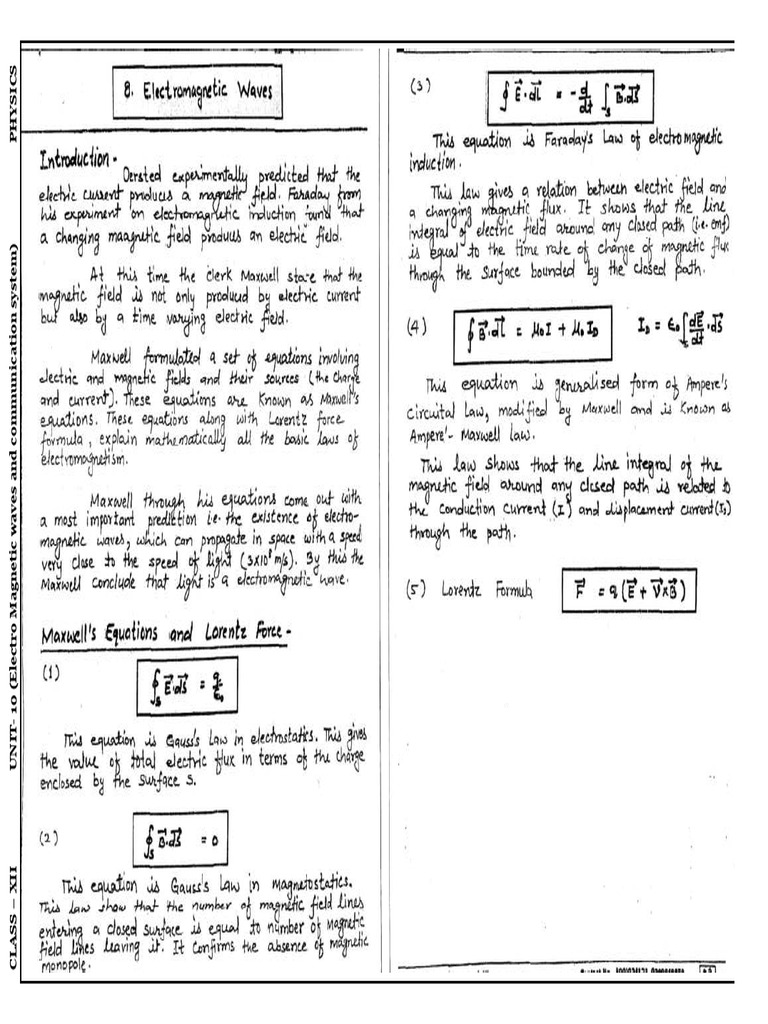 PHYSICS
UNIT- 10 (Electro Magnetic waves and communication system)
CLASS – XII
8. Electromagnetic Waves
Introduction -
Oersted experimentally predicted that the
electric current produces a magnetic field. Faraday from
his experiment on electromagnetic induction found that
a changing maagnetic field produces an electric field.
At this time the clerk Maxwell state that the
magnetic field is not only produced by electric current
but also by a time varying electric field.
Maxwell formulated a set of equations involving
electric and magnetic fields and their sources (the charge
and current). These equations are known as Maxwell's
equations. These equations along with Lorentz force
formula, explain mathematically all the basic laws of
electromagnetism.
Maxwell through his equations come out with
a most important prediction i.e. the existence of electro-
magnetic waves, which can propagate in space with a speed
very close to the speed of light (3x10⁸ m/s). By this the
Maxwell conclude that light is a electromagnetic wave.
Maxwell's Equations and Lorentz Force -
(1)
∮s E⃗.ds⃗ = q/ε₀
This equation is Gauss's Law in electrostatics. This gives
the value of total electric flux in terms of the charge
enclosed by the surface S.
(2)
∮s B⃗.ds⃗ = 0
This equation is Gauss's Law in magnetostatics.
This law show that the number of magnetic field lines
entering a closed surface is equal to number of magnetic
field lines leaving it. It confirms the absence of magnetic
monopole.
(3)
∮ E⃗.dl⃗ = - d/dt ∫s B⃗.ds⃗
This equation is Faraday's Law of electromagnetic
induction.
This law gives a relation between electric field and
a changing magnetic flux. It shows that the line
integral of electric field around any closed path (i.e. emf)
is equal to the time rate of change of magnetic flux
through the surface bounded by the closed path.
(4)
∮ B⃗.dl⃗ = μ₀I + μ₀ID   ID = ε₀ ∫s dE⃗/dt . ds⃗
This equation is generalised form of Ampere's
circuital Law, modified by Maxwell and is known as
Ampere'- Maxwell Law.
This law shows that the line integral of the
magnetic field around any closed path is related to
the conduction current (I) and displacement current (ID)
through the path.
(5) Lorentz Formula F⃗ = q (E⃗ + V⃗ x B⃗)